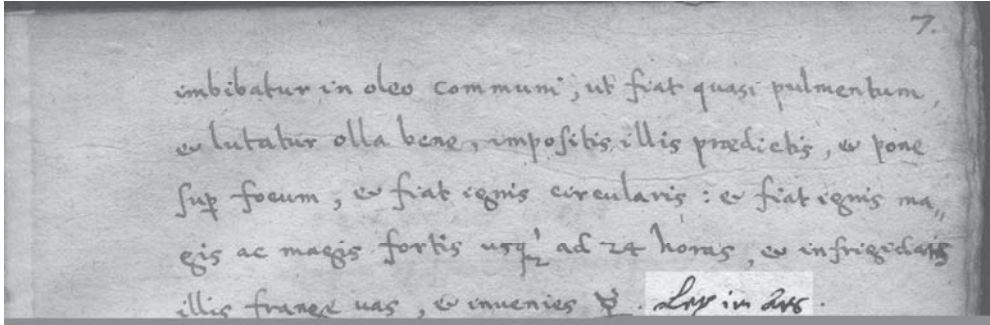 7.
imbibatur in oleo communi, ut fiat quasi pulmentum,
et lutatur olla bene, impositis illis prædictis, et pone
sup focum, et fiat ignis circularis: et fiat ignis ma,,
gis ac magis fortis usq ad 24 horas, et infrigidatis
illis frange vas, et invenies ☿. in